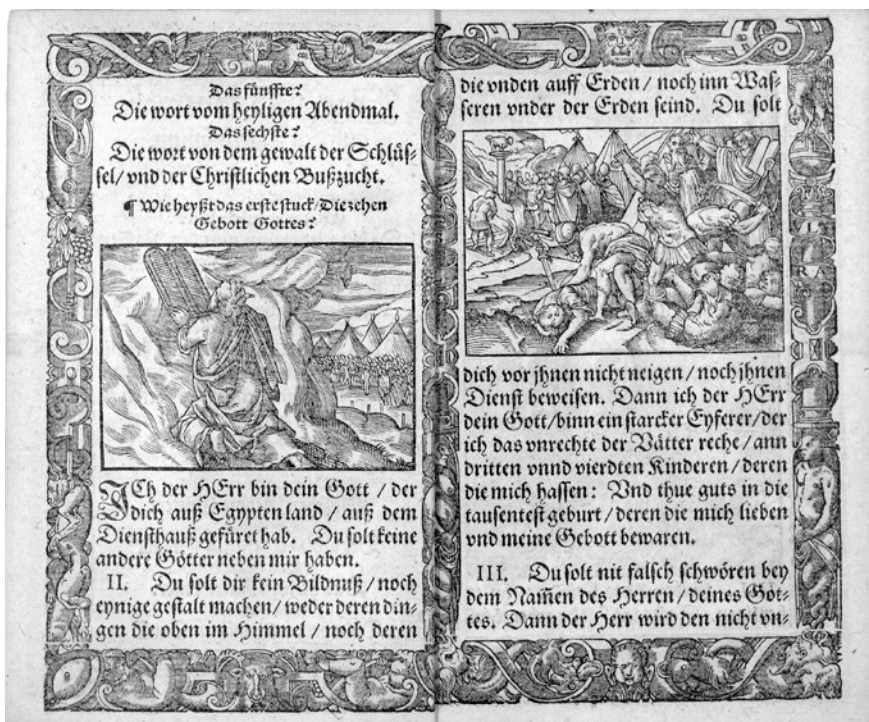 Das fünffte?
Die wort vom heyligen Abendmal.
Das sechste?
Die wort von dem gewalt der Schlüs⸗
sel/ vnd der Christlichen Bußzucht.
¶ Wie heyßt das erste stuck/ Die zehen
Gebott Gottes?
ICh der HErr bin dein Gott / der
dich auß Egypten land / auß dem
Diensthauß gefüret hab. Du solt keine
andere Götter neben mir haben.
II. Du solt dir kein Bildnuß / noch
eynige gestalt machen/ weder deren din⸗
gen die oben im Himmel / noch deren
die vnden auff Erden / noch inn Was⸗
seren vnder der Erden seind. Du solt
dich vor jhnen nicht neigen / noch jhnen
Dienst beweisen. Dann ich der HErr
dein Gott/ binn ein starcker Eyferer/ der
ich das vnrechte der Vätter reche / ann
dritten vnnd vierdten Kinderen / deren
die mich hassen: Vnd thue guts in die
tausentest geburt / deren die mich lieben
vnd meine Gebott bewaren.
III. Du solt nit falsch schwören bey
dem Nam̃en des Herren / deines Got⸗
tes. Dann der Herr wird den nicht vn⸗